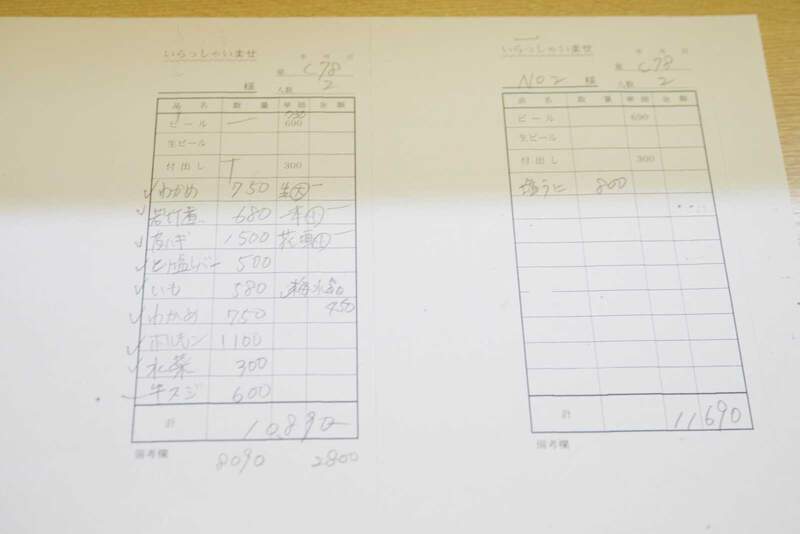 いらっしゃいませ
年 月 日
座 C78
様 人数 2
品 名 数 量 単価 金 額
ビール 一 750 600
生ビール
付出し T 300
わかめ 750
680
1500
500
いも 580 梅水晶
わかめ 750 450
ホルモン 1100
水菜 300
牛スジ 600
計 10,890
備考欄 8090 2800
いらっしゃいませ
年 月 日
座 C78
NO2 様 人数 2
品 名 数 量 単価 金 額
ビール 600
生ビール
付出し 300
塩うに 800
計 11690
備考欄